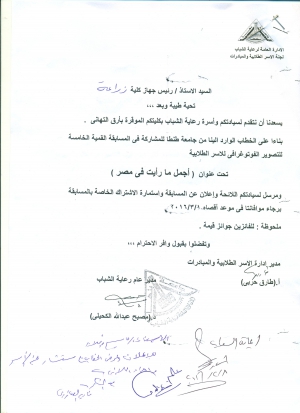 الإدارة العامة لرعاية الشباب
لجنة الأسر الطلابية والمبادرات
السيد الاستاذ / رئيس جهاز كلية زراعة
تحية طيبة وبعد ...
يسعدنا أن نتقدم لسيادتكم وأسرة رعاية الشباب بكليتكم الموقرة بأرق التهانى .
بناءا على الخطاب الوارد الينا من جامعة طنطا للمشاركة فى المسابقة القمية الخامسة
للتصوير الفوتوغرافى للأسر الطلابية
تحت عنوان ( أجمل ما رأيت فى مصر )
ومرسل لسيادتكم اللائحة وإعلان عن المسابقة واستمارة الاشتراك الخاصة بالمسابقة
برجاء موافاتنا فى موعد أقصاه ٢٠١٦/٣/١
ملحوظة : للفائزين جوائز قيمة .
وتفضلوا بقبول وافر الاحترام ...
مدير إدارة الأسر الطلابية والمبادرات
مدير عام رعاية الشباب
أ.(طارق حربى)
د.(مصبح عبدالله الكحيلى)